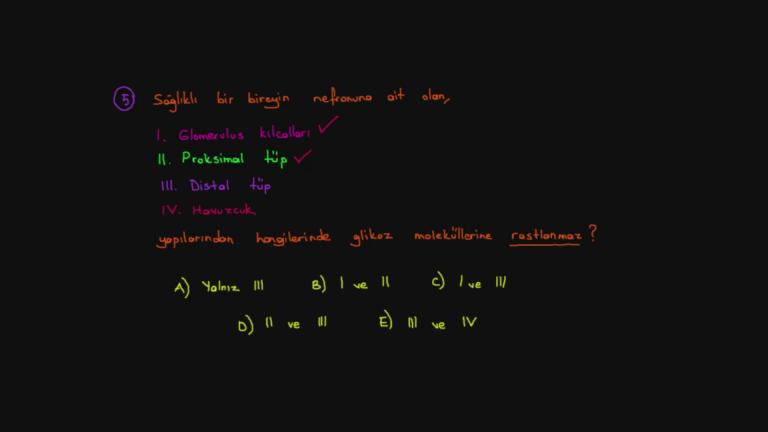 5 Sağlıklı bir bireyin nefronuna ait olan,
I. Glomerulus kılcalları
II. Proksimal tüp
III. Distal tüp
IV. Havuzcuk
yapılarından hangilerinde glikoz moleküllerine rastlanmaz?
A) Yalnız III B) I ve II C) I ve III
D) II ve III E) III ve IV